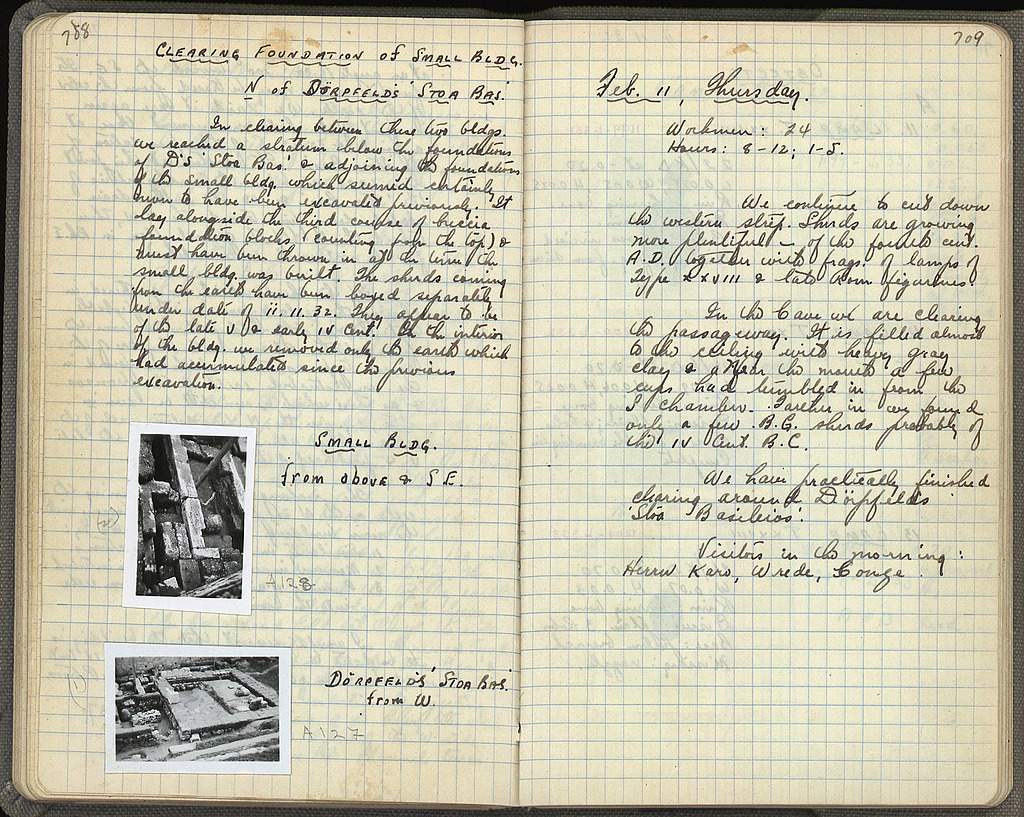 788
CLEARING FOUNDATION OF SMALL BLDG.
N OF DÖRPFELD'S 'STOA BAS.'
In clearing between these two bldgs.
we reached a stratum below the foundations
of D's 'Stoa Bas.' & adjoining the foundations
of the small bldg. which seemed certainly
to have been excavated previously. It
lay alongside the third course of breccia
foundation blocks (counting from the top) &
must have been thrown in at the time the
small bldg. was built. The sherds coming
from the earth have been boxed separately
under date of ii.11.32. They appear to be
of the late V & early IV cent. In the interior
of the bldg. we removed only the earth which
had accumulated since the previous
excavation.
SMALL BLDG.
from above & SE.
(2)
A128
(1)
DÖRPFELD'S 'STOA BAS.'
from W.
A127
709
Feb. 11, Thursday.
Workmen: 24
Hours: 8-12; 1-5.
We continue to cut down
the western strip. Sherds are growing
more plentiful – of the fourth cent.
A.D. together with frags. of lamps of
Type XXVIII & late Rom figurines.
In the Cave we are clearing
the passageway. It is filled almost
to the ceiling with heavy gray
clay & near the mouth a few
cups had tumbled in from the
S chamber. Farther in we found
only a few B.G. sherds probably of
the IV Cent. B.C.
We have practically finished
clearing around Dörpfeld's
'Stoa Basileios'.
Visitors in the morning:
Herrn Karo, Wrede,